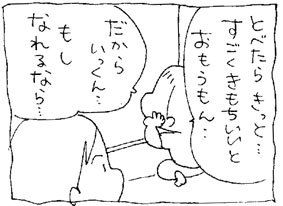 とべたら きっと…
すごくきもちいいと
おもうもん‥
だから
いっくん…
もし
なれるなら…